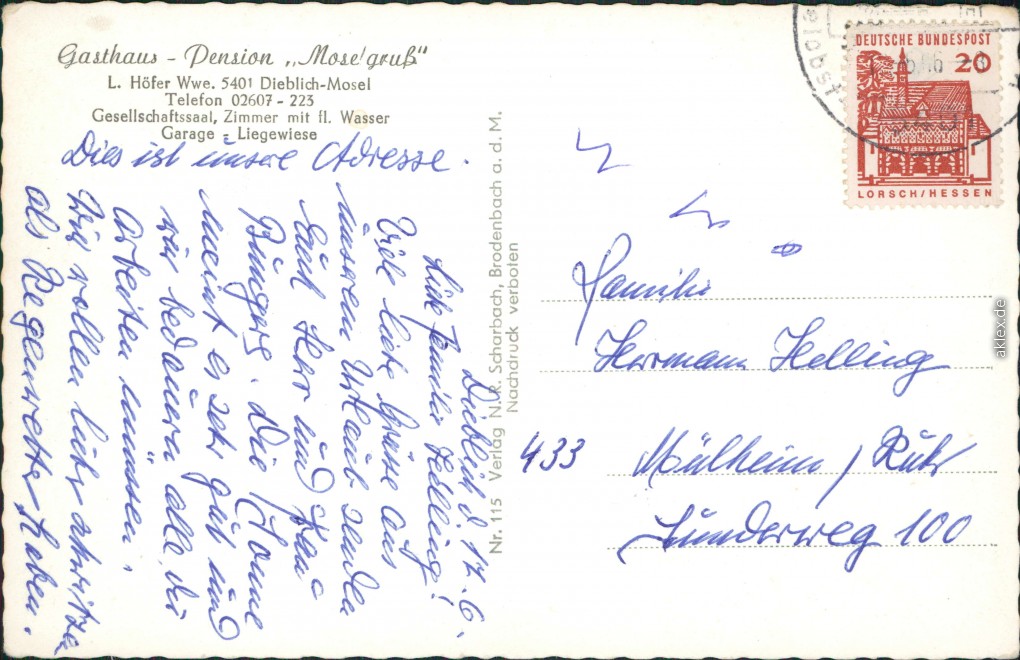 Gasthaus - Pension „Moselgruß"
L. Höfer Wwe. 5401 Dieblich-Mosel
Telefon 02607 - 223
Gesellschaftssaal, Zimmer mit fl. Wasser
Garage - Liegewiese
Dies ist unsere Adresse.
Dieblich d. 17.6.
Liebe Familie Helling!
Viele liebe Grüße aus
unseren Urlaub senden
Euch Herr und Frau
Büngers. Die Sonne
meint es sehr gut und
wir bedauern alle, die
arbeiten müssen.
Wir wollen lieber schwitzen
als Regenwetter haben.
Nr. 115 Verlag N. R. Scharbach, Brodenbach a. d. M.
Nachdruck verboten
DEUTSCHE BUNDESPOST
20
LORSCH/HESSEN
Familie
Herrmann Helling
433 Mülheim / Ruhr
Sunderweg 100
aklex.de